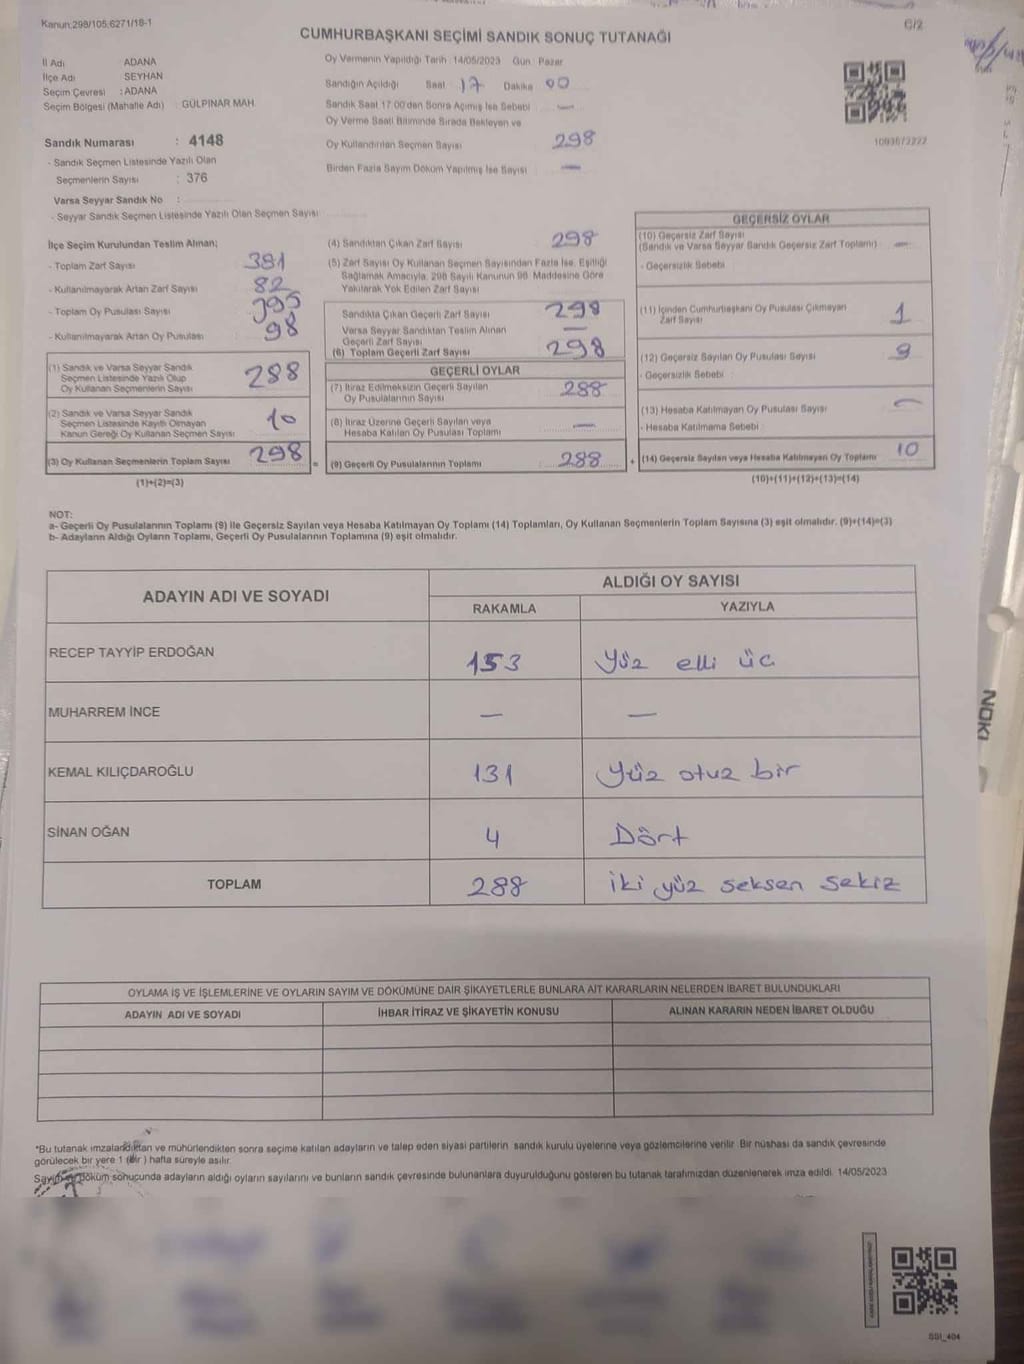 Kanun:298/105,6271/18-1
C/2
CUMHURBAŞKANI SEÇİMİ SANDIK SONUÇ TUTANAĞI
İl Adı : ADANA
İlçe Adı : SEYHAN
Seçim Çevresi : ADANA
Seçim Bölgesi (Mahalle Adı) : GÜLPINAR MAH.
Sandık Numarası : 4148
- Sandık Seçmen Listesinde Yazılı Olan
Seçmenlerin Sayısı : 376
Varsa Seyyar Sandık No :
- Seyyar Sandık Seçmen Listesinde Yazılı Olan Seçmen Sayısı
Oy Vermenin Yapıldığı Tarih : 14/05/2023 Gün : Pazar
Sandığın Açıldığı Saat 17 Dakika 00
Sandık Saat 17.00'den Sonra Açılmış İse Sebebi —
Oy Verme Saati Bitiminde Sırada Bekleyen ve
Oy Kullandırılan Seçmen Sayısı 298
Birden Fazla Sayım Döküm Yapılmış İse Sayısı —
İlçe Seçim Kurulundan Teslim Alınan;
- Toplam Zarf Sayısı 381
- Kullanılmayarak Artan Zarf Sayısı 82
- Toplam Oy Pusulası Sayısı 395
- Kullanılmayarak Artan Oy Pusulası 98
(1) Sandık ve Varsa Seyyar Sandık
Seçmen Listesinde Yazılı Olup
Oy Kullanan Seçmenlerin Sayısı 288
(2) Sandık ve Varsa Seyyar Sandık
Seçmen Listesinde Kayıtlı Olmayan
Kanun Gereği Oy Kullanan Seçmen Sayısı 10
(3) Oy Kullanan Seçmenlerin Toplam Sayısı 298 =
(1)+(2)=(3)
(4) Sandıktan Çıkan Zarf Sayısı 298
(5) Zarf Sayısı Oy Kullanan Seçmen Sayısından Fazla İse, Eşitliği
Sağlamak Amacıyla, 298 Sayılı Kanunun 98. Maddesine Göre
Yakılarak Yok Edilen Zarf Sayısı
Sandıkta Çıkan Geçerli Zarf Sayısı 298
Varsa Seyyar Sandıktan Teslim Alınan
Geçerli Zarf Sayısı —
(6) Toplam Geçerli Zarf Sayısı 298
GEÇERLİ OYLAR
(7) İtiraz Edilmeksizin Geçerli Sayılan
Oy Pusulalarının Sayısı 288
(8) İtiraz Üzerine Geçerli Sayılan veya
Hesaba Katılan Oy Pusulası Toplamı —
(9) Geçerli Oy Pusulalarının Toplamı 288 +
1093672222
GEÇERSİZ OYLAR
(10) Geçersiz Zarf Sayısı
(Sandık ve Varsa Seyyar Sandık Geçersiz Zarf Toplamı) —
- Geçersizlik Sebebi :
(11) İçinden Cumhurbaşkanı Oy Pusulası Çıkmayan
Zarf Sayısı 1
(12) Geçersiz Sayılan Oy Pusulası Sayısı 9
- Geçersizlik Sebebi :
(13) Hesaba Katılmayan Oy Pusulası Sayısı —
- Hesaba Katılmama Sebebi :
(14) Geçersiz Sayılan veya Hesaba Katılmayan Oy Toplamı 10
(10)+(11)+(12)+(13)=(14)
NOT:
a- Geçerli Oy Pusulalarının Toplamı (9) ile Geçersiz Sayılan veya Hesaba Katılmayan Oy Toplamı (14) Toplamları, Oy Kullanan Seçmenlerin Toplam Sayısına (3) eşit olmalıdır. (9)+(14)=(3)
b- Adayların Aldığı Oyların Toplamı, Geçerli Oy Pusulalarının Toplamına (9) eşit olmalıdır.
ADAYIN ADI VE SOYADI
ALDIĞI OY SAYISI
RAKAMLA YAZIYLA
RECEP TAYYİP ERDOĞAN 153 Yüz elli üç
MUHARREM İNCE — —
KEMAL KILIÇDAROĞLU 131 Yüz otuz bir
SİNAN OĞAN 4 Dört
TOPLAM 288 iki yüz seksen sekiz
OYLAMA İŞ VE İŞLEMLERİNE VE OYLARIN SAYIM VE DÖKÜMÜNE DAİR ŞİKAYETLERLE BUNLARA AİT KARARLARIN NELERDEN İBARET BULUNDUKLARI
ADAYIN ADI VE SOYADI İHBAR İTİRAZ VE ŞİKAYETİN KONUSU ALINAN KARARIN NEDEN İBARET OLDUĞU
*Bu tutanak imzalandıktan ve mühürlendikten sonra seçime katılan adayların ve talep eden siyasi partilerin sandık kurulu üyelerine veya gözlemcilerine verilir. Bir nüshası da sandık çevresinde
görülecek bir yere 1 (Bir) hafta süreyle asılır.
Sayım ve döküm sonucunda adayların aldığı oyların sayılarını ve bunların sandık çevresinde bulunanlara duyurulduğunu gösteren bu tutanak tarafımızdan düzenlenerek imza edildi. 14/05/2023
SSI_404
NOKI